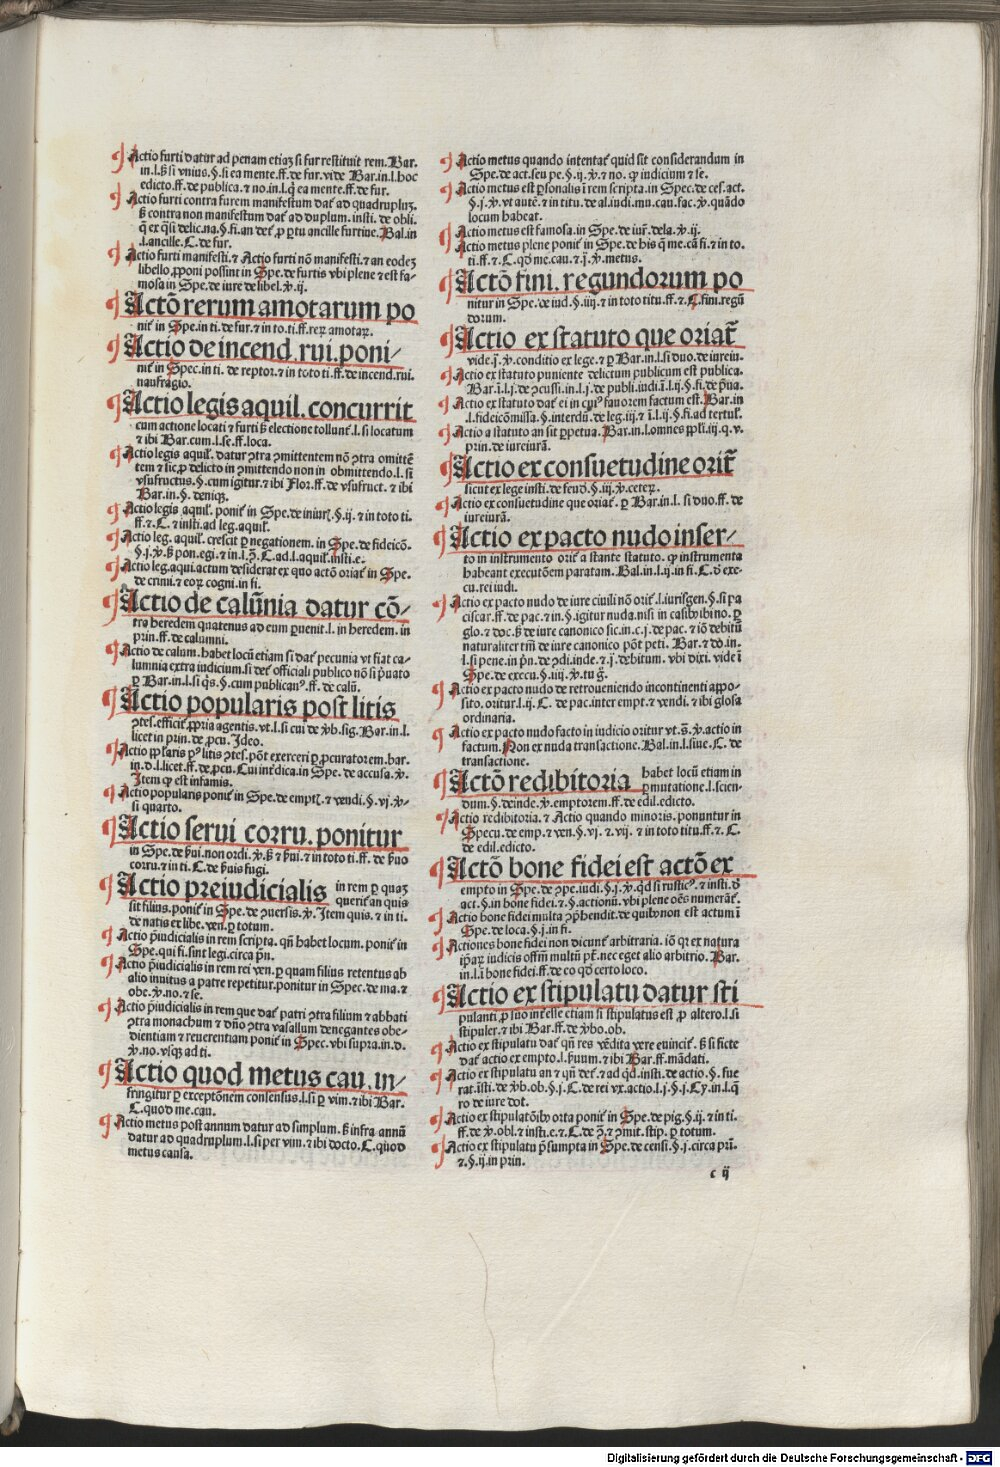 Actio furti datur ad penam etiaꝫ si fur restituit rem. Bar.
in.l.ꝭ si vnius.§.si ea mente.ff.de fur. vide Bar.in.l.hoc
edicto.ff.de publica.⁊ no.in.l.ꝙ ea mente.ff.de fur.
Actio furti contra furem manifestum dat᷑ ad quadruplum.
contra non manifestum dat᷑ ad duplum. insti. de obli.
Bal.in
.l.ancille.C.de fur.
Actio furti manifesti.⁊ Actio furti nō manifesti.⁊ an eodeꝫ
libello ꝓponi possint in Spe.de furtis vbi plene ⁊ est fa-
mosa in Spe.de iure de libel.ꝟ.ij.
Actō rerum amotarum po
nit᷑ in Spe.in ti.de fur.⁊ in to.ti.ff.reꝝ amotaꝝ.
Actio de incend.rui.poni/
nit᷑ in Spec.in ti. de reptor.⁊ in toto ti.ff.de incend.rui.
naufragio.
Actio legis aquil.concurrit
cum actione locati ⁊ furti electione tollunt᷑.l.si locatum
⁊ ibi Bar.cum.l.se.ff.loca.
Actio legis aquil᷑. datur ꝯtra ꝯmittentem nō ꝯtra omittē
tem ⁊ sic ꝓ delicto in ꝯmittendo non in obmittendo.l.si
vsufructus.§.cum igitur.⁊ ibi Flor.ff.de vsufruct.⁊ ibi
Bar.in.§.deniqꝫ.
Actio legis aquil. ponit᷑ in Spe.de iniur.§.ij.⁊ in toto ti.
ff.⁊.C.⁊ insti.ad leg.aquil᷑.
Actio leg.aquil᷑.crescit ꝑ negationem. in Spe.de fideicō.
Actio leg.aqui.actum desiderat ex quo actō oriat᷑ in Spe.
de crimi.⁊ eoꝝ cogni.in fi.
Actio de calūnia datur cō-
tra heredem quatenus ad eum ꝑuenit.l. in heredem. in
prin.ff.de calumni.
Actio de calum.habet locū etiam si dat᷑ pecunia vt fiat ca-
lumnia extra iudicium.si det᷑ officiali publico nō si p̱uato
ꝑ Bar.in.l.si q̇s.§.cum publicanꝰ.ff.de calū.
Actio popularis post litis
ꝯtes.efficit᷑ ꝓpria agentis.vt.l.si cui de ꝟb.sig.Bar.in.l.
licet in prin.de ꝓcu.Ideo.
Actio ppl᷑aris pꝰ litis ꝯtes.pōt exerceri ꝑ ꝓcuratorem.bar.
in.d.l.licet.ff.de ꝓcu.Cui int᷑dica.in Spe.de accusa.ꝟ.
Item ꝙ est infamis.
Actio popularis ponit᷑ in Spe.de empt.⁊ vendi.§.vj.ꝟ-
si quarto.
Actio serui corru.ponitur
in Spe.de
corru.⁊ in ti.C.de
Actio preiudicialis in rem ꝑ quaꝫ
querit᷑ an quis
sit filius.ponit᷑ in Spe.de ꝯuersis.ꝟ.Item quis.⁊ in ti.
de natis ex libe.ven.ꝑ totum.
Actio p̄iudicialis in rem scripta. qn̄ habet locum. ponit᷑ in
Spe.qui fi.sint legi.circa pn̄.
Actio p̄iudicialis in rem rei ven.ꝑ quam filius retentus ab
alio inuitus a patre repetitur.ponitur in Spec.de ma.⁊
obe.ꝟ.no.⁊ se.
Actio p̄iudicialis in rem que dat᷑ patri ꝯtra filium ⁊ abbati
ꝯtra monachum ⁊ dn̄o ꝯtra vasallum denegantes obe-
dientiam ⁊ reuerentiam ponit᷑ in Spec.vbi supra.in.d.
ꝟ.no.vsqꝫ ad ti.
Actio quod metus cau.in/
fringitur ꝑ exceptōnem consensus.l.si ꝑ vim.⁊ ibi Bar.
C.quod me.cau.
Actio metus post annum datur ad simplum. infra annū
datur ad quadruplum.l.si per vim.⁊ ibi docto.C.quod
metus causa.
Actio metus quando intentat᷑ quid sit considerandum in
Spe.de act.seu pe.§.ij.ꝟ.⁊ no. ꝙ iudicium ⁊ se.
Actio metus est ꝑsonalis ī rem scripta.in Spec.de ces.act.
§.j.ꝟ.vt autē.⁊ in titu.de al.iudi.mu.cau.fac.ꝟ.quādo
locum habeat.
Actio metus est famosa.in Spe.de iur᷑.dela.ꝟ.ij.
Actio metus plene ponit᷑ in Spe.de his q̄ me.cā fi.⁊ in to.
ti.ff.⁊.C.qd̄ me.cau.⁊.j.ꝟ.metus.
Actō fini.regundorum po
nitur in Spe.de iud.§.iiij.⁊ in toto titu.ff.⁊.C.fini.regū
dorum.
Actio ex statuto que oriat᷑
vide.j̄.ꝟ.conditio ex lege.⁊ ꝑ Bar.in.l.si duo.de iureiu.
Actio ex statuto puniente delictum publicum est publica.
Bar.ī.l.j.de ꝯcussi.in.l.j.de publi.iudi.ī.l.ij.§.fi.de p̱ua.
Actio ex statuto dat᷑ ei in fauorem factum est.Bar.in
.l.fideicōmissa.§.interdū.de leg.iij.⁊ ī.l.ij.§.fi.ad tertul᷑.
Actio a statuto an sit ꝑpetua.Bar.in.l.omnes ppl᷑i.iij.q.v.
prin.de iureiurā.
Actio ex consuetudine orit᷑
sicut ex lege insti.de feud.§.iij.ꝟ.ceteꝝ.
Actio ex consuetudine que oriat᷑. ꝑ Bar.in.l. si duo.ff.de
iureiurā.
Actio ex pacto nudo inser-
to in instrumento orit᷑ a stante statuto. ꝙ instrumenta
habeant executōem paratam. Bal.in.l.ij.in fi.C.d̄ exe-
cu.rei iudi.
Actio ex pacto nudo de iure ciuili nō orit᷑.l.iurisgen.§.si pa
ciscar.ff.de pac.⁊ in.§.igitur nuda.nisi in casibꝰ ibi no. ꝑ
glo.⁊ doc. de iure canonico sic.in.c.j.de pac.⁊ iō debitū
naturaliter tm̄ de iure canonico pōt peti. Bar.⁊ do.in-
.l.si pene.in pn̄.de ꝯdi.inde.⁊.j̄.debitum. vbi dixi. vide ī
Spe.de execu.§.iiij.ꝟ.tu
Actio ex pacto nudo de retroueniendo incontinenti appo-
sito.oritur.l.ij. C. de pac.inter empt.⁊ vendi.⁊ ibi glosa
ordinaria.
Actio ex pacto nudo facto in iudicio oritur vt.s̄.ꝟ.actio in
factum.Non ex nuda transactione.Bal.in.l.siue.C.de
transactione.
Actō redibitoria habet locū etiam in
ꝑmutatione.l.scien-
dum.§.deinde.ꝟ.emptorem.ff.de edil.edicto.
Actio redibitoria.⁊ Actio quando minoris.ponuntur in
Specu.de emp.⁊ ven.§.vj.⁊ vij.⁊ in toto titu.ff.⁊.C.
de edil.edicto.
Actō bone fidei est actō ex
empto in Spe.de ꝯpe.iudi.§.j.ꝟ.qd̄ si rusticꝰ.⁊ insti.d̄
act.§.in bone fidei.⁊.§.actionū.vbi plene oēs numerāt᷑.
Actio bone fidei multa ꝯp̄hendit.de quibꝰ non est actum ī
Spe.de loca.§.j.in fi.
Actiones bone fidei non dicunt᷑ arbitraria.iō qꝛ ex natura
ip̄aꝝ iudicis offm̄ multū pt᷑.nec eget alio arbitrio.Bar.
in.l.ī bone fidei.ff.de eo qd̄ certo loco.
Actio ex stipulatu datur sti
pulanti ꝓ suo int᷑esse etiam si stipulatus est ꝓ altero.l.si
stipuler.⁊ ibi Bar.ff.de ꝟbo.ob.
Actio ex stipulatu dat᷑ qn̄ res vēdita vere euincit᷑. si ficte
dat᷑ actio ex empto.l. ⁊ ibi Bar.ff.mādati.
Actio ex stipulatu an ⁊ qn̄ det᷑.⁊ ad qd̄.insti.de actio.§.fue
rat.īsti.de ꝟb.ob.§.j.C.de rei vx.actio.l.j.§.j.
ro de iure dot.
Actio ex stipulatōibꝰ orta ponit᷑ in Spe.de pig.§.ij.⁊ in ti.
ff.de ꝟ.obl.⁊ insti.e.⁊.C.de ⁊ ꝯmit.stip. ꝑ totum.
Actio ex stipulatu p̄sumpta in Spe.de censi.§.j.circa pri᷑.
⁊.§.ij.in prin.
c ij
Digitalisierung gefördert durch die Deutsche Forschungsgemeinschaft - DFG